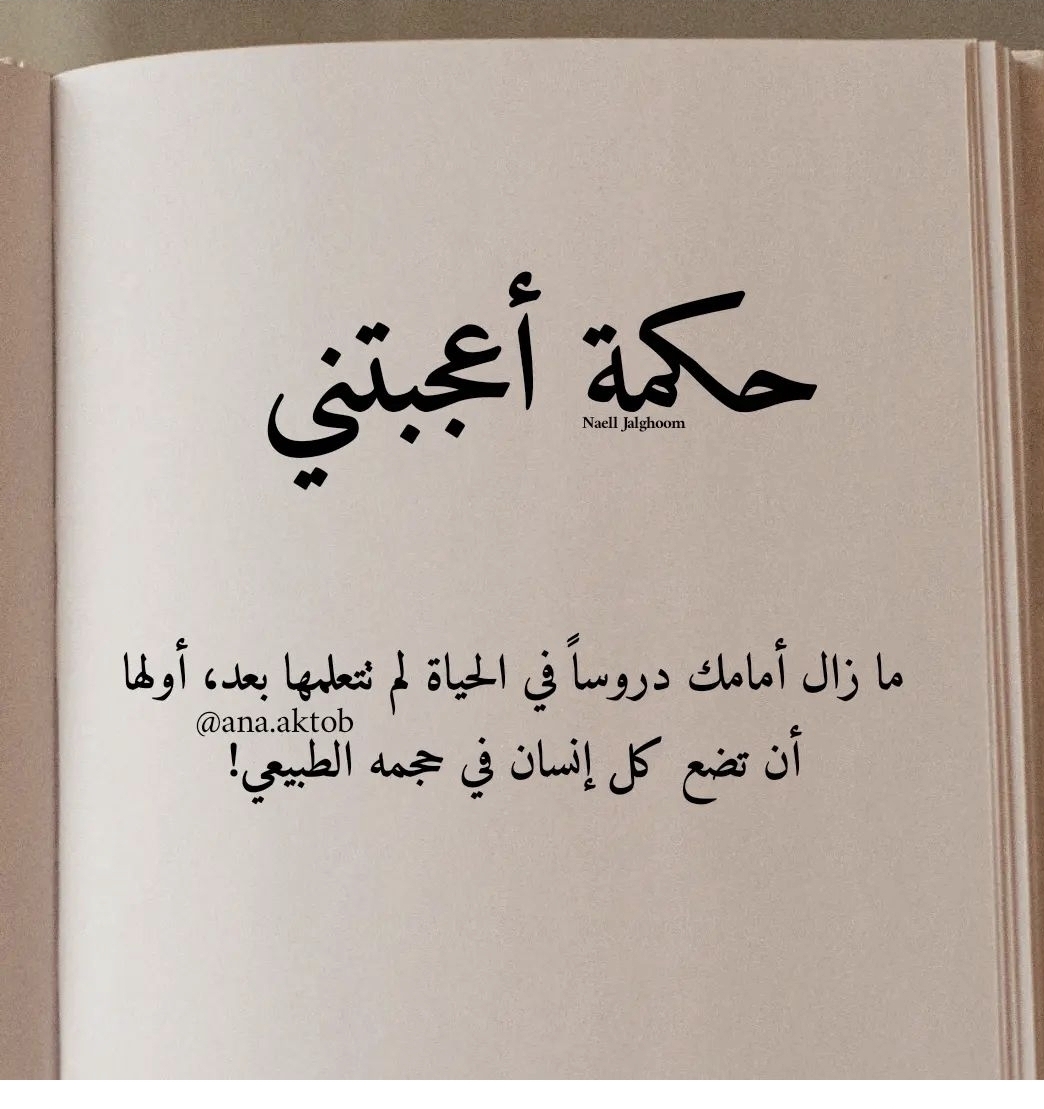 حكمة أعجبتني
Naell Jalghoom
ما زال أمامك دروساً في الحياة لم تتعلمها بعد، أولها
@ana.aktob
أن تضع كل إنسان في حجمه الطبيعي!